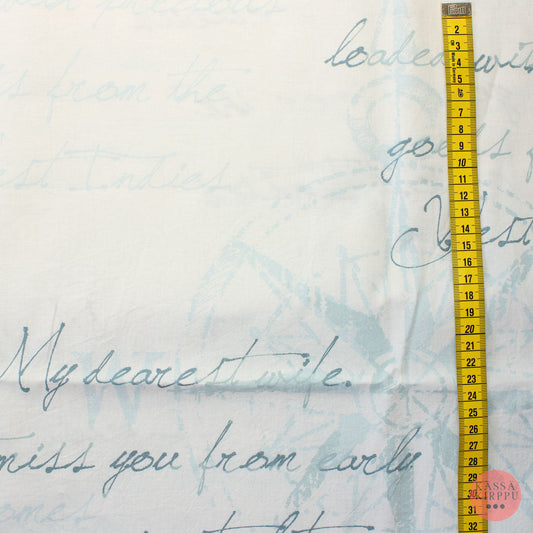 with precious
loaded
from the
goods
West Indies
West
My dearest wife.
miss you from early
2
3
4
5
6
7
8
9
10
11
12
13
14
15
16
17
18
19
20
21
22
23
24
25
26
27
28
29
30
31
32
KASSA
KIRPPU